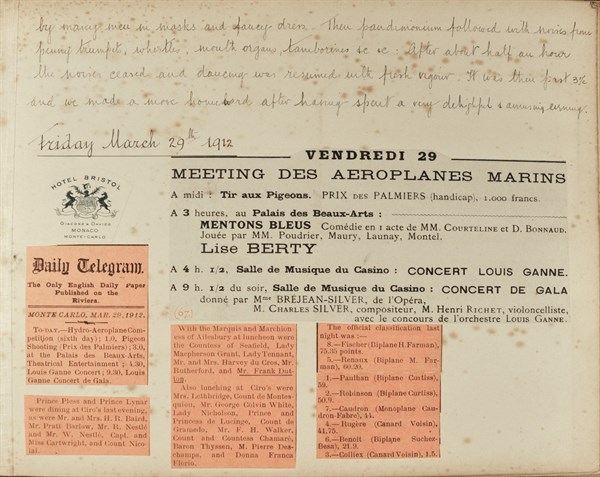 by many men in masks and fancy dress. Then pandimonium followed with noises from
penny trumpet, whistles, mouth organs, tambourines &c &c: After about half an hour
the noises ceased and dancing was resumed with fresh vigour. It was then past 3½
and we made a move homeward after having spent a very delightful & amusing evening.
Friday March 29th 1912
VENDREDI 29
MEETING DES AEROPLANES MARINS
HOTEL BRISTOL
MONACO
MONTE-CARLO
A midi : Tir aux Pigeons. PRIX DES PALMIERS (handicap), 1.000 francs.
A 3 heures, au Palais des Beaux-Arts :
MENTONS BLEUS Comédie en 1 acte de MM. COURTELINE et D. BONNAUD.
Jouée par MM. Poudrier, Maury, Launay, Montel.
Lise BERTY
A 4 h. 1/2, Salle de Musique du Casino : CONCERT LOUIS GANNE.
A 9 h. 1/2 du soir, Salle de Musique du Casino : CONCERT DE GALA
donné par Mme BRÉJEAN-SILVER, de l'Opéra,
M. CHARLES SILVER, compositeur, M. Henri RICHET, violoncelliste,
avec le concours de l'orchestre LOUIS GANNE.
Daily Telegram.
The Only English Daily Paper
Published on the
Riviera.
MONTE CARLO, MAR. 29, 1912.
TO-DAY.—Hydro-Aeroplane Com-
petition (sixth day); 1.0, Pigeon
Shooting (Prix des Palmiers); 3.0,
at the Palais des Beaux-Arts,
Theatrical Entertainment; 4.30,
Louis Ganne Concert; 9.30, Louis
Ganne Concert de Gala.
Prince Pless and Prince Lynar
were dining at Ciro's last evening,
as were Mr. and Mrs. H. B. Baird,
Mr. Pratt Barlow, Mr. R. Nestlé
and Mr. W. Nestlé, Capt. and
Miss Cartwright, and Count Nico-
lai.
(07)
With the Marquis and Marchion-
ess of Ailesbury at luncheon were
the Countess of Seafield, Lady
Macpherson Grant, Lady Tennant,
Mr. and Mrs. Harvey du Cros, Mr.
Rutherford, and Mr. Frank Dut-
ton.
Also lunching at Ciro's were
Mrs. Lethbridge, Count de Montes-
quiou, Mr. George Colvin White,
Lady Nicholson, Prince and
Princess de Lucinge, Count de
Gramedo, Mr. F. H. Walker,
Count and Countess Chamaré,
Baron Thyssen, M. Pierre Des-
champs, and Donna Franca
Florio.
The official classification last
night was :—
8.—Fischer (Biplane H. Farman),
75.35 points.
5.—Renaux (Biplane M. Far-
man), 60.20.
1.—Paulhan (Biplane Curtiss),
2.—Robinson (Biplane Curtiss),
7.—Caudron (Monoplane Cau-
dron-Fabre), 44.
4.—Rugère (Canard Voisin),
41.75.
6.—Benoit (Biplane Suchez-
Bess), 21.9.
3.—Colliex (Canard Voisin), 1.5.